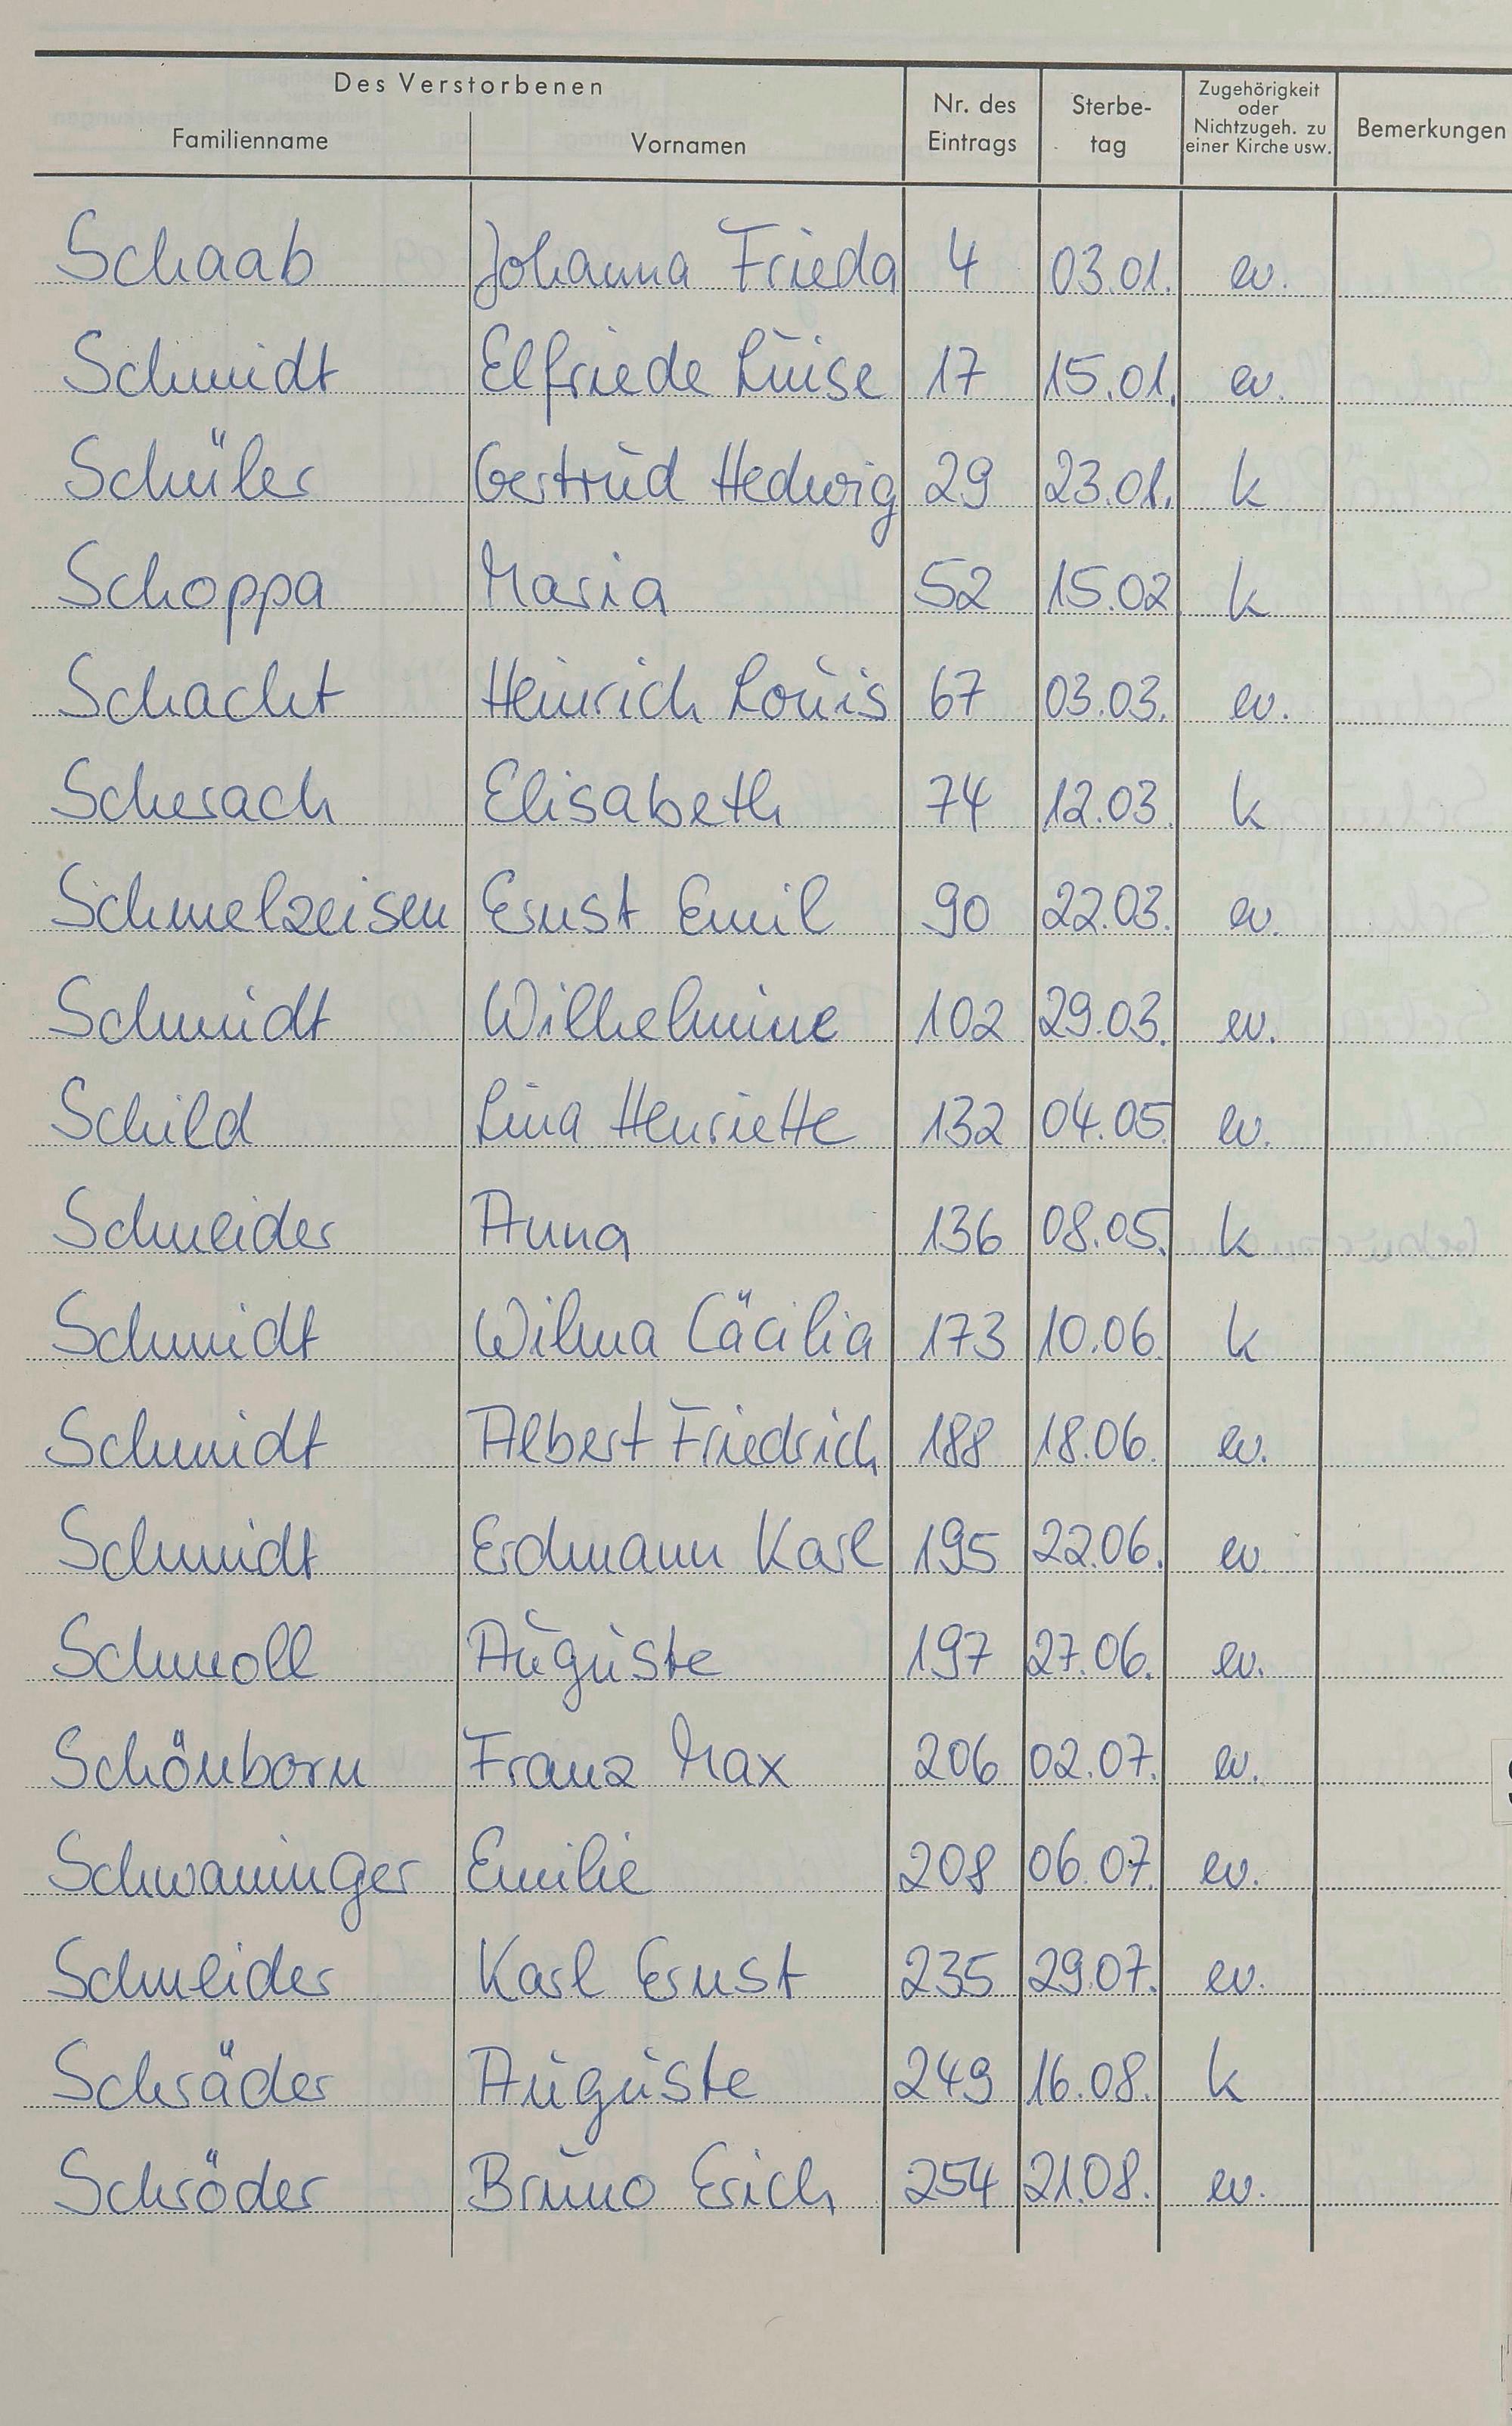 Des Verstorbenen
Familienname Vornamen Nr. des Eintrags Sterbe-tag Zugehörigkeit oder Nichtzugeh. zu einer Kirche usw. Bemerkungen
Schaab Johanna Frieda 4 03.01. ev.
Schmidt Elfriede Luise 17 15.01. ev.
Schüler Gertrud Hedwig 29 23.01. k
Schoppa Maria 52 15.02 k
Schacht Heinrich Louis 67 03.03. ev.
Scherach Elisabeth 74 12.03. k
Schmelzeisen Ernst Emil 90 22.03. ev.
Schmidt Wilhelmine 102 29.03. ev.
Schild Lina Henriette 132 04.05. ev.
Schneider Anna 136 08.05. k
Schmidt Wilma Cäcilia 173 10.06. k
Schmidt Albert Friedrich 188 18.06. ev.
Schmidt Erdmann Karl 195 22.06. ev.
Schmoll Auguste 197 27.06. ev.
Schönborn Franz Max 206 02.07. ev.
Schwaninger Emilie 208 06.07. ev.
Schneider Karl Ernst 235 29.07. ev.
Schräder Auguste 249 16.08. k
Schröder Bruno Erich 254 21.08. ev.